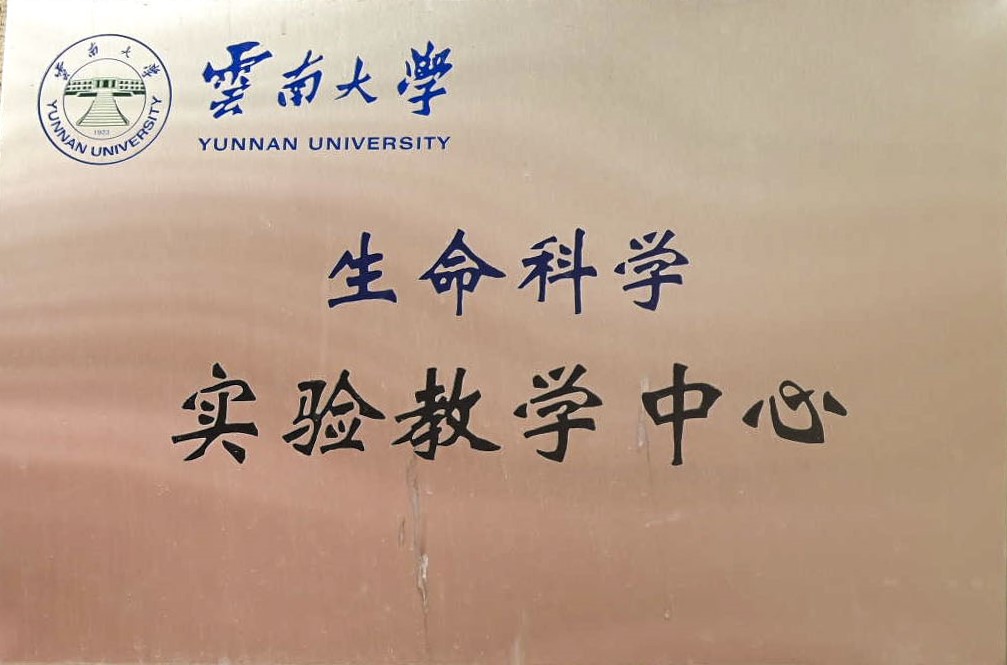 雲南大學
YUNNAN UNIVERSITY
1923
雲南大學
YUNNAN UNIVERSITY
生命科学
实验教学中心